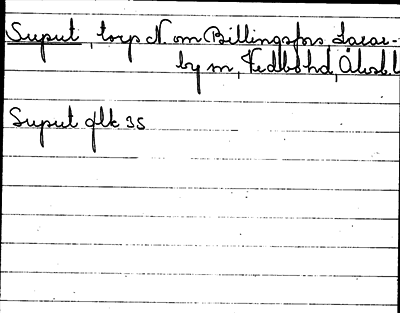 Suput, torp N. om Billingsfors Laxar-
by sn, Vedbo hd, Älvsb. l
Suput glk 35